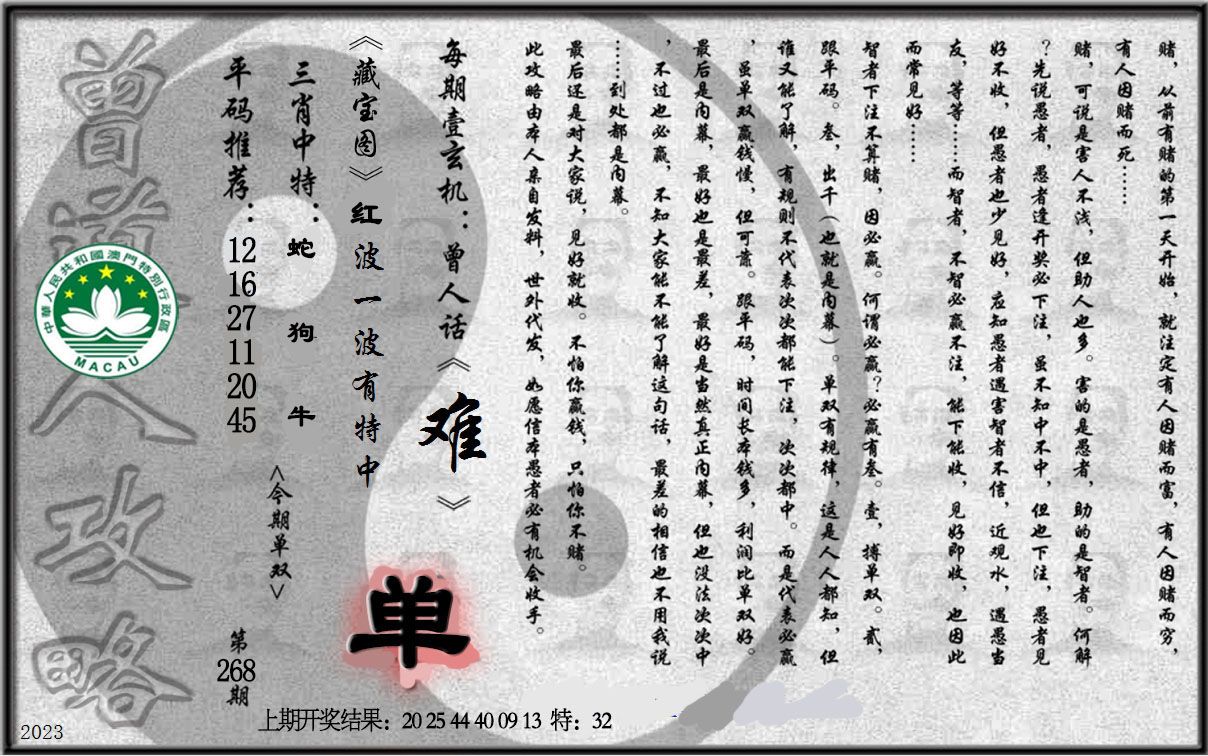 赌，从前有赌的第一天开始，就注定有人因赌而富，有人因赌而穷，
有人因赌而死……
赌，可说是害人不浅，但助人也多。害的是愚者，助的是智者。何解
？先说愚者，愚者逢开奖必下注，虽不知中不中，但也下注，愚者见
好不收，但愚者也少见好，应知愚者遇害智者不信，近观水，遇愚当
友，等等……而智者，不智必赢不注，能下能收，见好即收，也因此
而常见好……
智者下注不算赌，因必赢。何谓必赢？必赢有叁。壹，搏单双。贰，
跟平码。叁，出千（也就是内幕）。单双有规律，这是人人都知，但
谁又能了解，有规则不代表次次都能下注，次次都中。而是代表必赢
，虽单双赢钱慢，但可靠。跟平码，时间长本钱多，利润比单双好。
最后是内幕，最好也是最差，最好是当然真正内幕，但也没法次次中
，不过也必赢，不知大家能不能了解这句话，最差的相信也不用我说
……到处都是内幕。
最后还是对大家说，见好就收。不怕你赢钱，只怕你不赌。
此攻略由本人亲自发料，世外代发，如愿信本愚者必有机会收手。
每期壹玄机：曾人话《难》
《藏宝图》红波一波有特中
单
三肖中特：蛇 狗 牛
<今期单双>
平码推荐：12 16 27 11 20 45
第268期
曾道人攻略
中華人民共和國澳門特別行政區
MACAU
上期开奖结果：20 25 44 40 09 13 特：32
2023